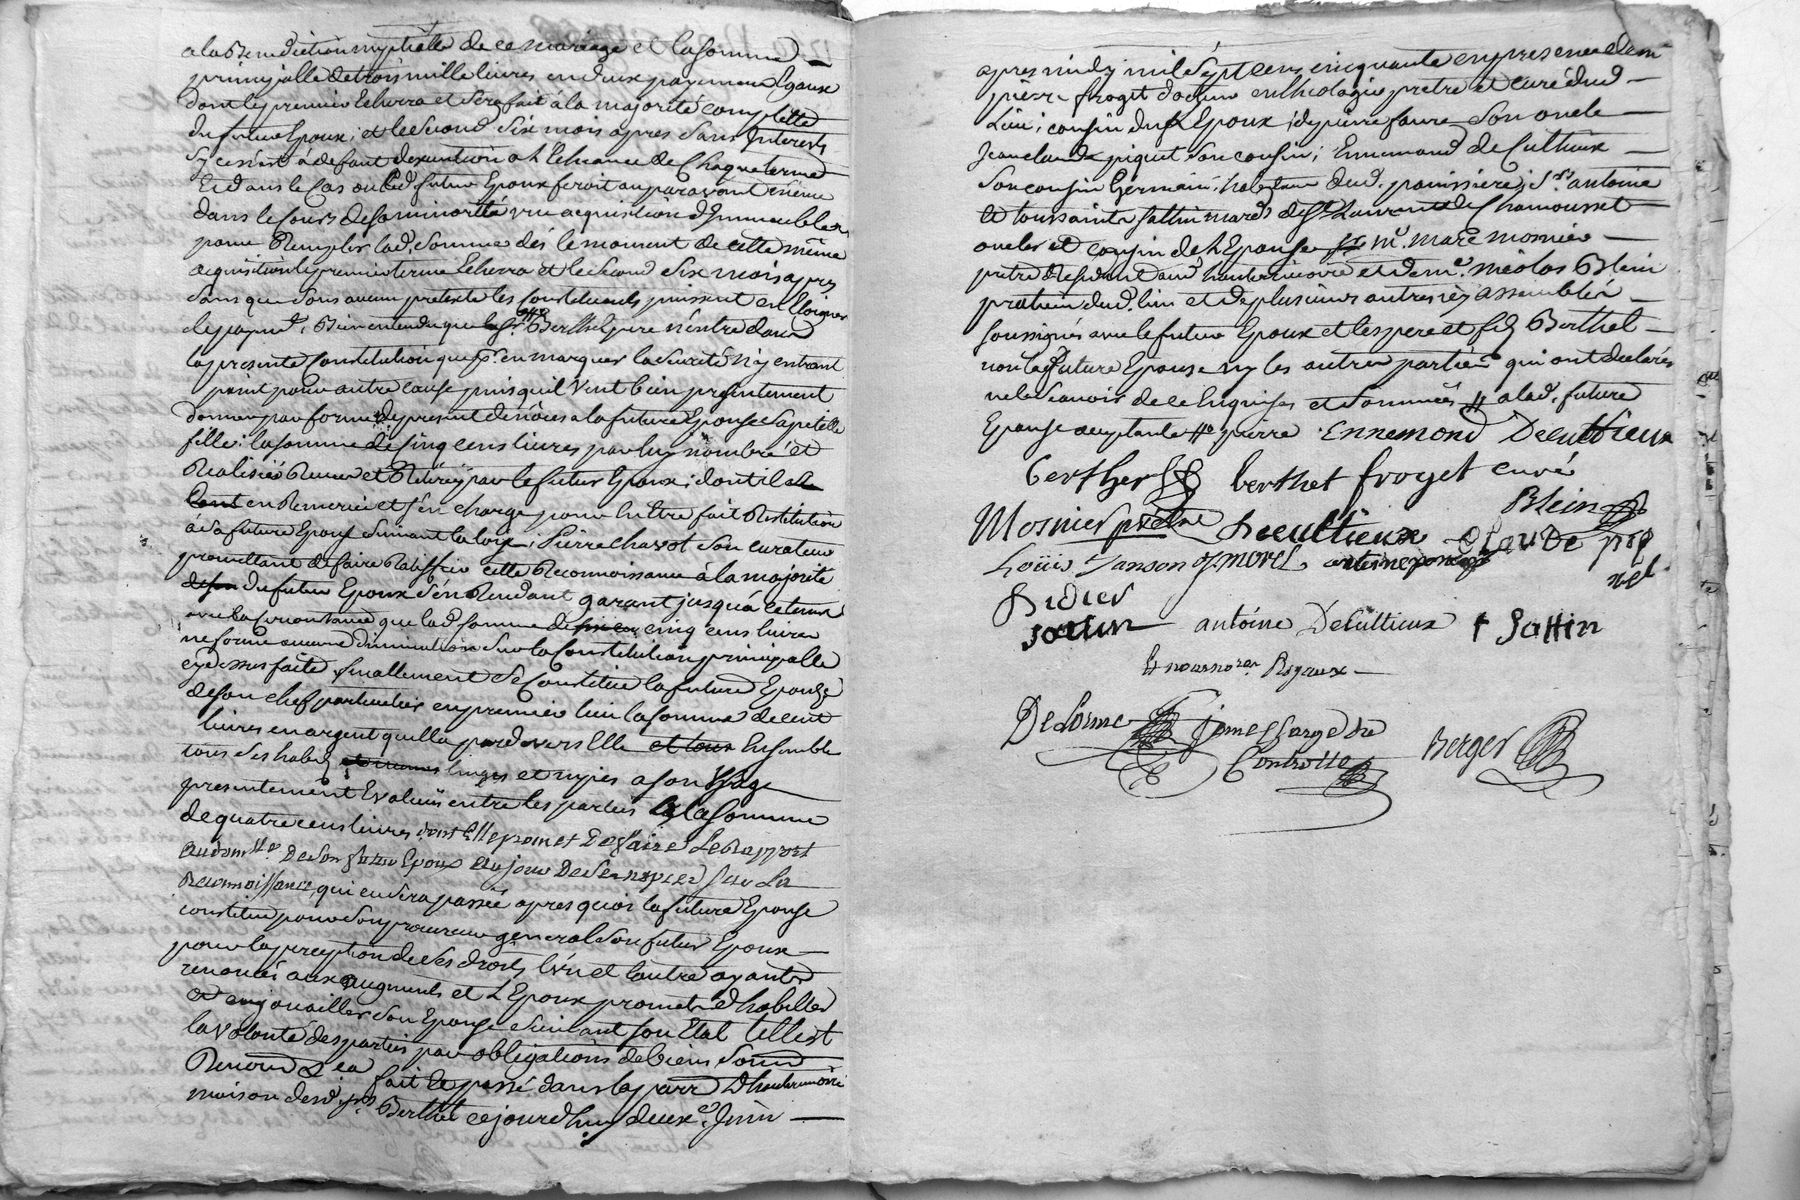 ala Benediction nuptialle de ce mariage et la somme
principalle de trois mille livres en deux payements Egaux
dont le premier Echerra et sera fait à la majorité complette
du futur Epoux, et le second six mois apres sans Interests
sy ce n'est a defaut dexecution a l'Echeance de Chaque terme
Et dans le Cas ou led. futur Epoux feroit auparavant même
dans le Cours de sa minorité une acquisition d'Immeubles
pour Remplir lad. somme dés le moment de cette même
acquisition le premier terme Echerra et le second six mois apres
sans que sous aucun pretexte les Constituants puissent en Eloigner
le payem.t, Bien entendu que le Sr. Berthet pere n'entre dans
la presente Constitution que pr. en marquer la sureté n'y entrant
point pour autre cause puisquil vient bien presentement
donner par forme de present de nôces a la future Epouse sa petitte
fille la somme de cinq cens livres par luy nombré et
Realisée Receu et Retirée par le futur Epoux, dont il
en Remercie et s'en charge pour En être fait Restitution
à sa future Epouse suivant la loix, Pierre Chavot son curateur
promettant de faire Ratiffier cette Reconnoissance à la majorité
du futur Epoux s'en Rendant garant jusqu'a ce temps
avec la circonstance que lad. somme de cinq cens livres
ne forme aucune diminution sur la Constitution principalle
cydessus faite, finallement se Constitue la future Epouse
de son chef particulier en premier lieu la somme de cent
livres en argent quella pardevers Elle et tous Ensemble
tous ses habes linges et nipes a son Usage
presentement Evalués entre les parties a la somme
de quatre cens livres dont Elle promet De faire Le Rapport
au domlle De son futur Epoux au jour De ses nopces sur La
Reconnoissance qui en sera passée apres quoi la future Epouse
constitue pour son procureur general son futur Epoux
pour la perception de ses droits l'un et l'autre ayants
renoncés aux augments et L'Epoux promet d'habiller
et enjouailler son Epouse suivant son Etat telle est
la volonté des parties par obligations de biens soum
Renon &ea fait et passé dans la parr. D'hauterivoire
maison desd. srs Berthet cejourd'huy deuxe. Juin
apres midy mil sept cens cinquante en presence de mre
pierre froget docteur en theologie pretre et curé dud
Lieu, cousin du f. Epoux, de pierre favre son oncle
Jean claude piquet son cousin, Ennemond deCultieux
son cousin Germain, habitans dud. panissiere, Srs antoine
et toussaint sattin mards de St Laurent de Chamousset
oncles et cousin de L'Epouse mre. marc mosnier
pretre Residant aud. hauterivoire et de me. nicolas Blein
praticien dud. lieu et de plusieurs autres icy assemblés
soussignés avec le futur Epoux et les pere et fils Berthet
non la future Epouse ny les autres parties qui ont declarés
ne le scavoir de ce Enquises et sommées // a lad. future
Epouse acceptante // pierre Ennemond Decultieux
berthet berthet froget curé
Mosnier pretre Decultieux Blein
Claude piq
uet
Loüis Janson J morel antoine
Didier
sattin antoine Decultieux t Sattin
Et nous nores. Royaux
Delorme Jame Large dit
Controlle Berger